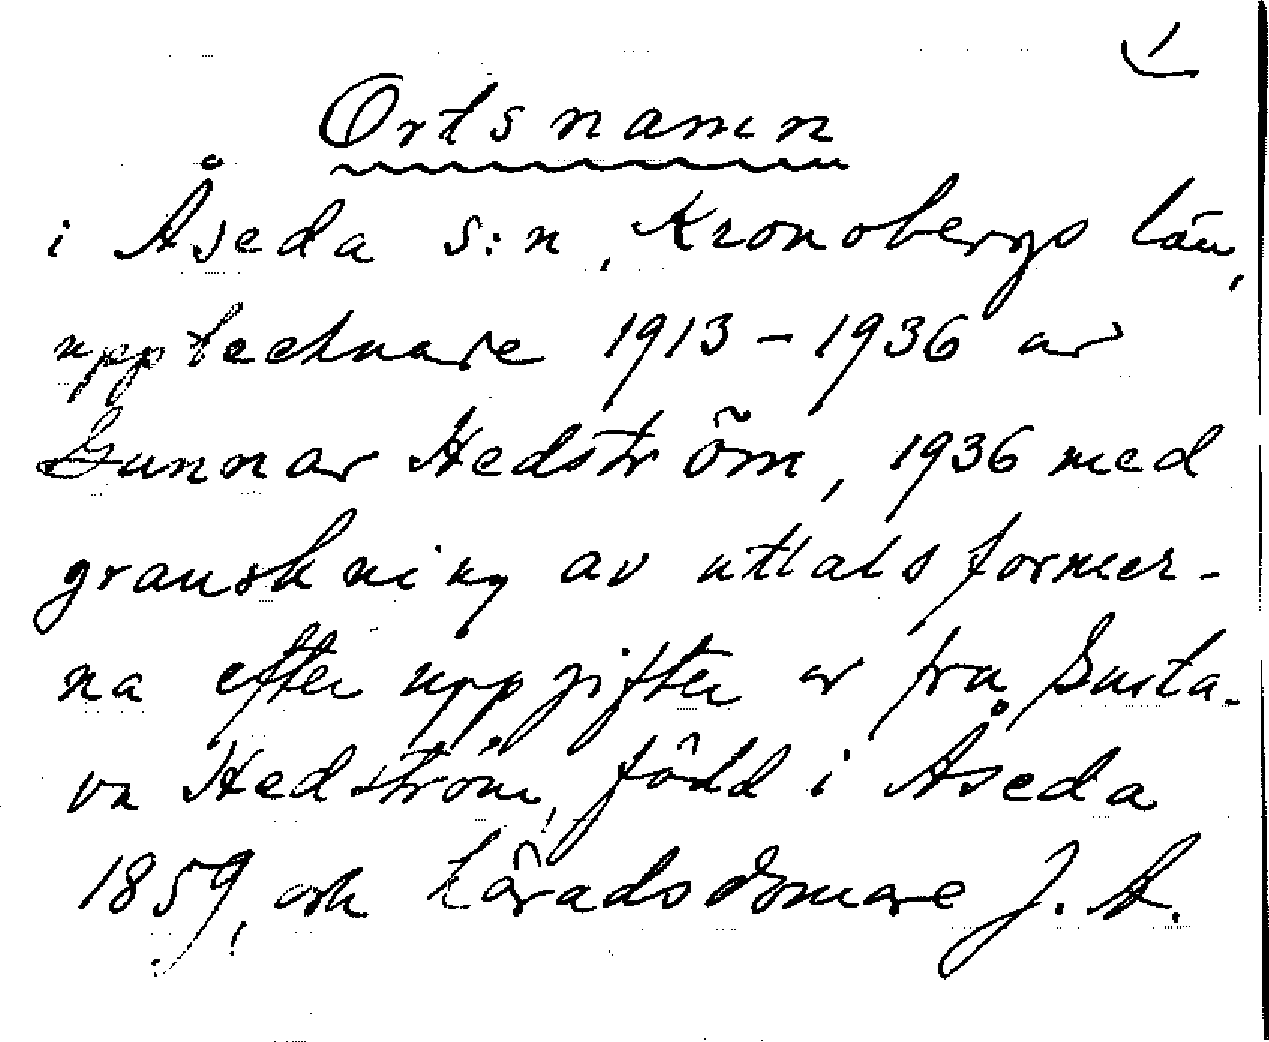 1
Ortsnamn
i Åseda s:n, Kronobergs län,
upptecknade 1913-1936 av
Gunnar Hedström, 1936 med
granskning av uttalsformer-
na efter uppgifter av fru Gusta-
va Hedström, född i Åseda
1859, och häradsdomare J. A.